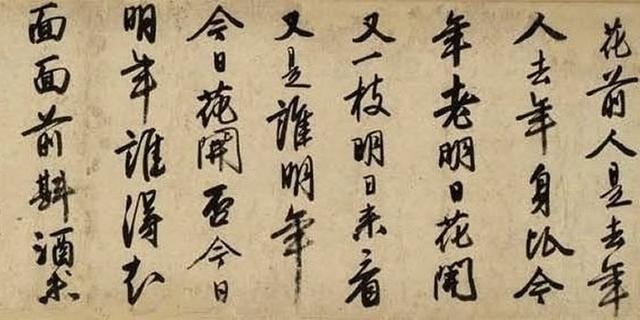 花前人是去年
人去年身比今
年老明日花開
又一枝明日来看
又是誰明年
今日花開否今日
明年誰得
面面前斟酒